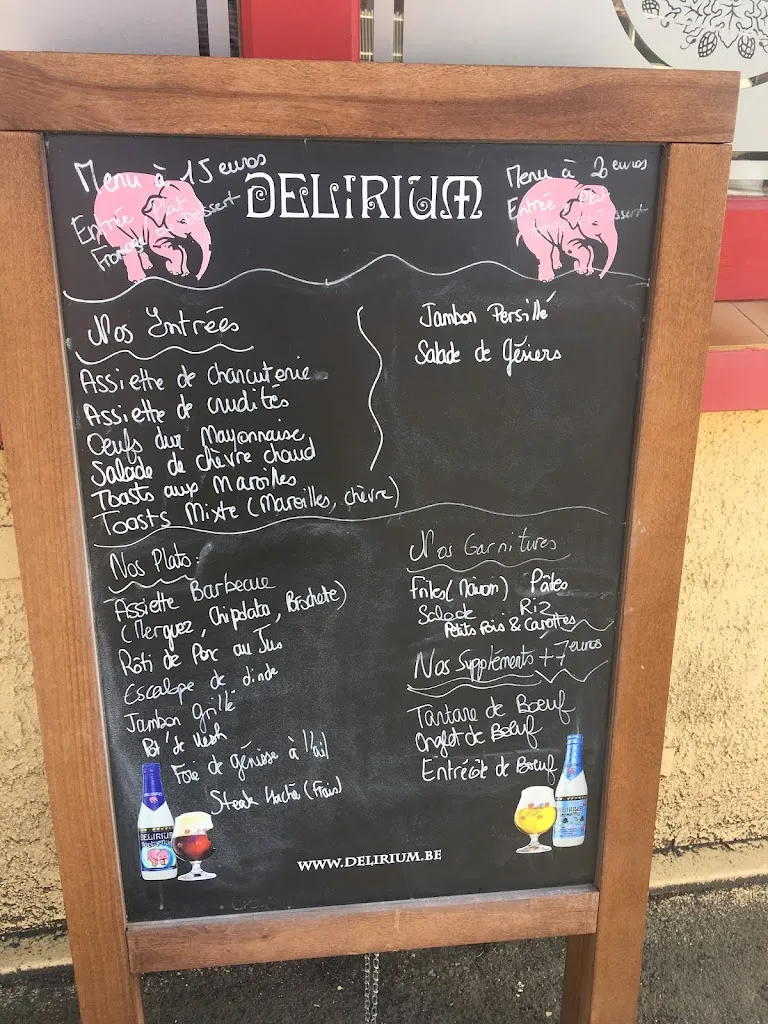 Menu à 15 euros
Entrée Plat
Fromage et Dessert
DELIRIUM
Menu à 20 euros
Entrée Plat
Dessert
Nos Entrées
Assiette de Charcuterie
Assiette de crudités
Oeufs dur Mayonnaise
Salade de chèvre chaud
Toasts aux Maroilles
Toasts Mixte (Maroilles, chèvre)
Jambon Persillé
Salade de Gésiers
Nos Plats:
Assiette Barbecue
(Merguez, Chipolata, Brochette)
Rôti de Porc au Jus
Escalope de dinde
Jambon Grillé
Foie de génisse à l'ail
Steak Haché (Frais)
Nos Garnitures
Frites (Maison) Pâtes
Salade Riz
Petits Pois & Carottes
Nos Suppléments + 7 euros
Tartare de Boeuf
Onglet de Boeuf
Entrecôte de Boeuf
DELIRIUM
DELIRIUM
WWW.DELIRIUM.BE